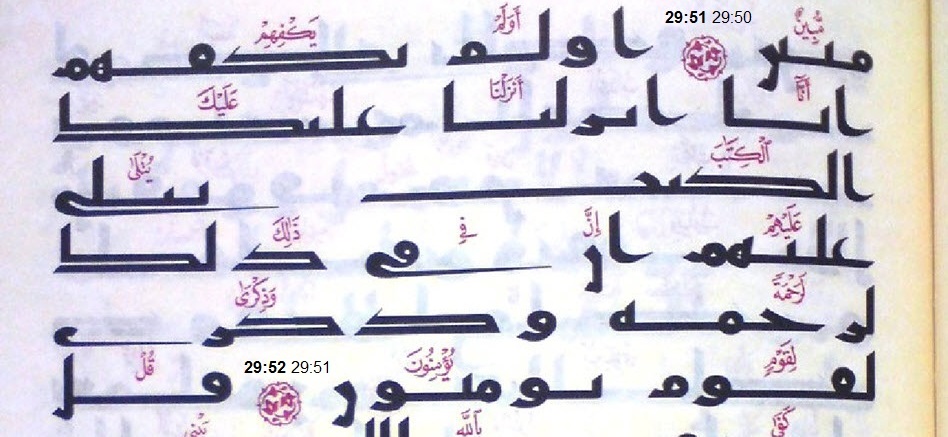 مُّبِينٌ 29:50 29:51 أَوَلَمْ يَكْفِهِمْ
مبين اولم يكفهم
أَنَّآ أَنزَلْنَا عَلَيْكَ
انا انزلنا عليك
ٱلْكِتَٰبَ يُتْلَىٰ
الكتب يتلى
عَلَيْهِمْ إِنَّ فِي ذَٰلِكَ
عليهم ان في ذلك
لَرَحْمَةً وَذِكْرَىٰ
لرحمه وذكرى
لِقَوْمٍ يُؤْمِنُونَ 29:51 29:52 قُلْ
لقوم يومنون قل
كَفَىٰ بِٱللَّهِ بَيْنِي